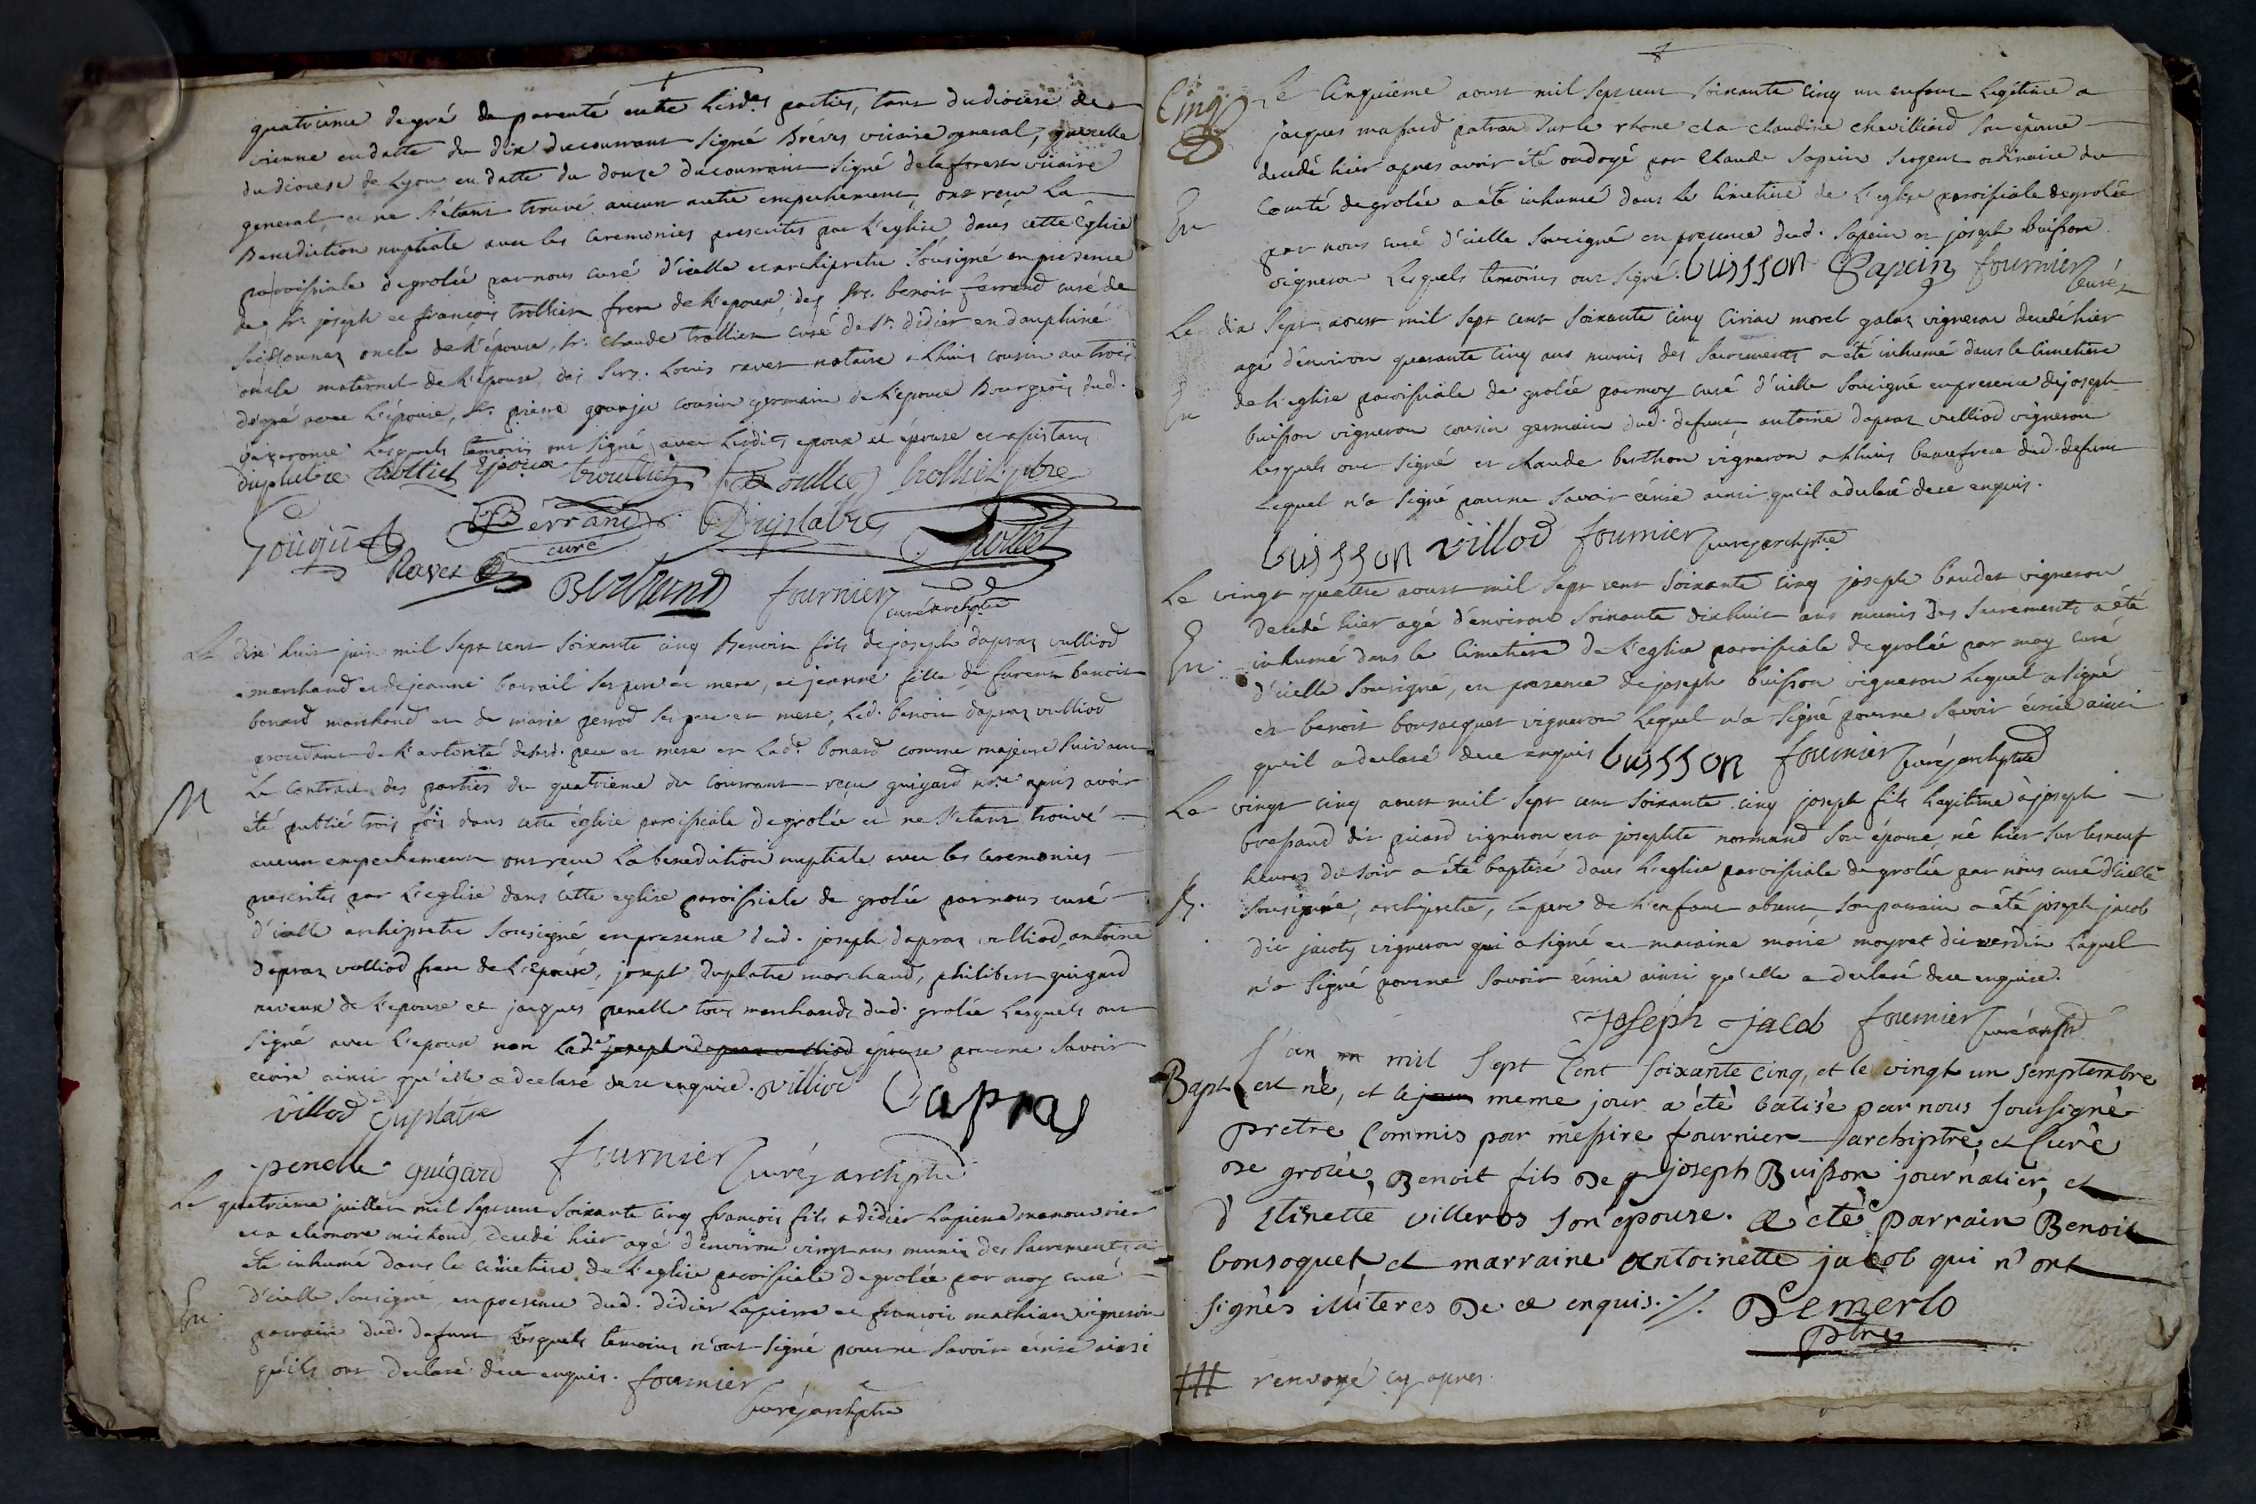 quatrieme degré de parenté entre lesd.es parties, tant du diocese de
vienne en datte du dix du courrant signé Bréves vicaire general, que celle
du diocese de Lyon en datte du douze du courrant signé delaforest vicaire
general, et ne s'étant trouvé aucun autre empechement, ont reçu La
Benediction nuptiale avec les ceremonies prescrites par L'eglise dans cette église
paroissiale de grolée par nous curé d'icelle et archipretre soussigné en presence
des Srs. joseph et françois trollier frere de L'epoux, des Srs. benoit ferrand curé de
oncle de L'épouse, Sr. claude trollier curé de St. didier en dauphiné
oncle maternel de L'épouse, des Srs. Louis ravet notaire a Lhuis cousin au trois.
dégré avec L'épouse, Sr. pierre gouju cousin germain de L'epouse Bourgeois dud.
Lesquels temoins ont signé avec Lesdits epoux et épouse et assistans
duplatre trollier Epoux trollier trollier ptre
Goûjû ferrand curé Duplatre trollier
Ravet Bertrand fournier curé archiptre
Le dix huit juin mil sept cent soixante cinq Benoit fils de joseph dapraz vulliod
marchand et de jeanne borrail ses pere et mere, et jeanne fille de fureux benoit
bonard marchand et de marie perrod ses pere et mere, Led. benoit dapraz vulliod
procedant de L'autorité desd. pere et mere et Lad.e bonard comme majeure suivant
Le contract des parties du quatrieme du courrant reçu guigard n.re apres avoir
M
été publié trois fois dans cette église paroissiale de grolée et ne s'étant trouvé
aucun empechement ont reçu La benediction nuptiale avec les ceremonies
prescrites par L'eglise dans cette eglise paroissiale de grolée par nous curé
d'icelle archipretre soussigné en presence dud. joseph dapraz vulliod, antoine
dapraz vulliod frere de L'epoux, joseph duplatre marchand, philibert guigard
neveux de L'epouse et jacques penelle tous marchands dud. grolée Lesquels ont
signé avec L'epoux non Lad.e joseph dapraz vulliod épouse pour ne savoir
ecrire ainsi qu'elle a declaré de ce enquise. villiod Dapraz
villod Duplatre
penelle guigard fournier curé archiptre
Le quatrieme juillet mil sept cent soixante cinq francois fils a didier Lapierre manouvrier
et a eleonore michoud, decedé hier agé d'environ vingt ans munis des sacrements a
été inhumé dans le cimetiere de L'eglise paroissiale de grolée par moy curé
En.
d'icelle soussigné, en presence dud. didier Lapierre et francois mathian vigneron
parrain dud. defunt Lesquels temoins n'ont signé pour ne savoir écrire ainsi
qu'ils ont declaré de ce enquis. fournier
curé archiptre
Cinq.
Le Cinquieme aoust mil sept cent soixante cinq un enfant Legitime a
jacques massard patron sur le rhone et a claudine chevilliard son épouse
decedé hier apres avoir été ondoyé par Claude Sapein sergent ordinaire du
Comté de grolée a été inhumé dans le cimetiere de L'eglise paroissiale de grolée
En
par nous curé d'icelle soussigné en presence dud. Sapein et joseph buisson
vigneron Lesquels temoins ont signé. buisson Sapein fournier curé
Le dix sept aoust mil sept cent soixante cinq Ciriac morel galaz vigneron decedé hier
agé d'environ quarante cinq ans munis des sacrements a été inhumé dans le cimetiere
de L'eglise paroissiale de grolée par moy curé d'icelle soussigné en presence de joseph
En
buisson vigneron cousin germain dud. defunt antoine dapraz vulliod vigneron
Lesquels ont signé et claude berthon vigneron a Lhuis beaufrere dud. defunt
Lequel n'a signé pour ne savoir écrire ainsi qu'il a declaré de ce enquis.
buisson villod fournier curé archiptre
Le vingt quatre aoust mil sept cent soixante cinq joseph baudet vigneron
decedé hier agé d'environ soixante dix huit ans munis des sacrements a été
En.
inhumé dans le cimetiere de L'eglise paroissiale de grolée par moy curé
d'icelle soussigné, en presence de joseph buisson vigneron Lequel a signé
et benoit bonsaquet vigneron Lequel n'a signé pour ne savoir écrire ainsi
qu'il a declaré de ce enquis buisson fournier curé archiptre
Le vingt cinq aoust mil sept cent soixante cinq joseph fils Legitime à joseph
brossaud dit picard vigneron et a josephte normand son épouse, né hier sur les neuf
heures du soir a été baptisé dans L'eglise paroissiale de grolée par nous curé d'icelle
B.
soussigné, archipretre, le pere de L'enfant absent, son parrain a été joseph jacob
dit jacoty vigneron qui a signé et maraine marie moyret dit verdin Laquel
n'a signé pour ne savoir écrire ainsi qu'elle a declaré de ce enquise.
Joseph Jacob fournier curé archiptre
Bapt
L'an mil sept Cent soixante cinq, et le vingt un semptembre
est né, et le jour meme jour a été batisé par nous soussigné
pretre Commis par messire fournier archiptre, et Curé
de grolée, Benoit fils De joseph Buisson journalier, et
D'Etinette villeros son epouse. a été parrain Benoit
bonsoquet et marraine antoinette jacob qui n'ont
signés illiteres De ce enquis. //. Demerlo
ptre
renvoyé cy apres.